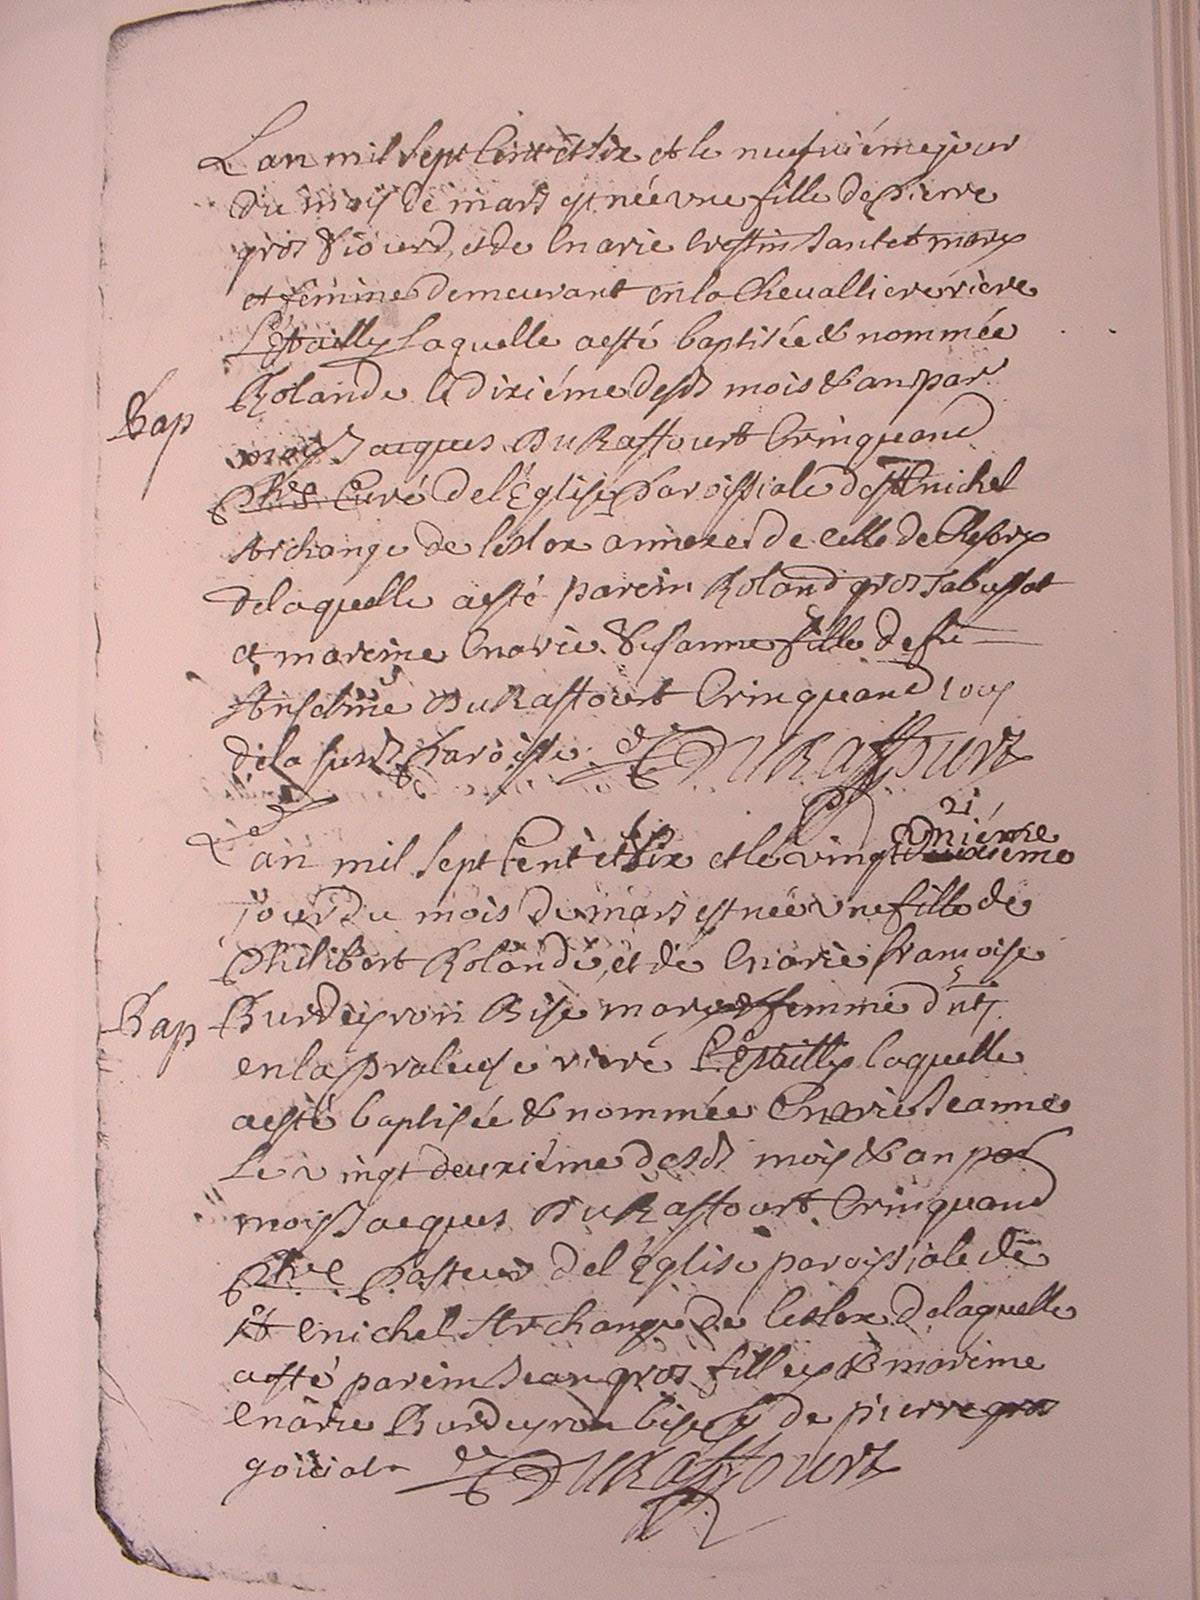 L'an mil sept Cent et six et le neufvième jour
du mois de mars est née vne fille de pierre
gros et de marie Crestin mary
et femme demeurant en la Chevalliere riere
Lézailly laquelle a esté baptisée & nommée
Rolande le dixiéme desd. mois & an par
moy Jacques DuRaffourt Crinquand
Ptre Curé de l'Église Paroissiale de St michel
Archange de lesdox annexe de celle de Chesery
de laquelle a esté parein Roland gros Tabussat
et mareine marie Susanne fille de fû
Anselme DuRaffourt Crinquand tous
de la susd. Paroisse. DuRaffourt
L'an mil sept Cent et six et le vingt deuxiéme
21
Vnième
jour du mois de mars est née vne fille de
Bap
Philibert Rolandé, et de marie françoise
Bap
Burdeyron Bise mary & femme d.nts
en la praleyse riere Lézailly laquelle
a esté baptisée & nommée marie Jeanne
Le vingt deuxiéme desd. mois & an par
moy Jacques DuRaffourt Crinquand
Ptre Pasteur de l'Église paroissiale de
St michel Archange de lesdox de laquelle
a esté parein Jean gros filley & mareine
marie Burdeyron bise f. de pierre gros
goiciat DuRaffourt